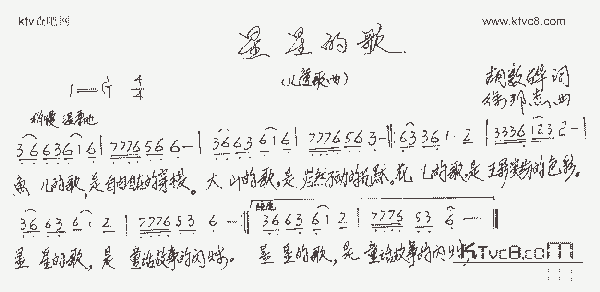 ktv歌吧网
www.ktvc8.com
星星的歌
(儿童歌曲)
1=G 4/4
胡敦骅 词
徐邦杰 曲
稍慢 温柔地
3663616 | 7776566- | 3663616 | 7776563- :|| 63361·2 | 3336123 2- |
鱼儿的歌,是自由自在的穿梭。大山的歌,是岿然不动的沉默。花儿的歌,是五彩缤纷的色彩。
3663612 | 7776536- :|| 3663612 | 7776536- ||
结尾
星星的歌,是童话故事的闪烁。星星的歌,是童话故事的闪烁。
KTvc8.com